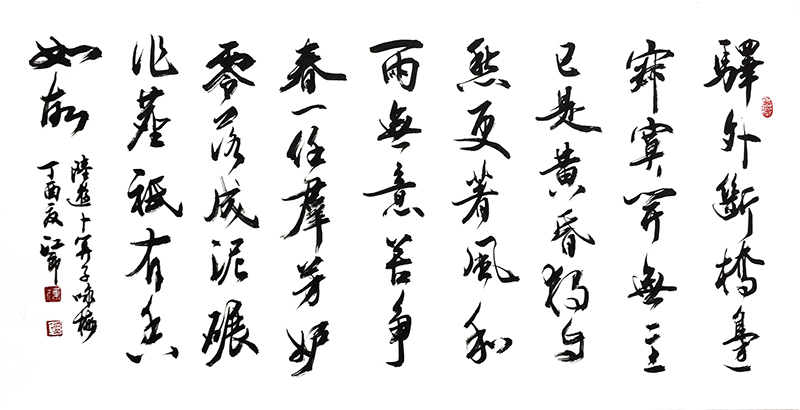 驛外斷橋邊
寂寞開無主
已是黃昏獨自
愁更著風和
雨無意苦爭
春一任羣芳妒
零落成泥碾
作塵祇有香
如故
陸遊卜算子咏梅
丁酉夏